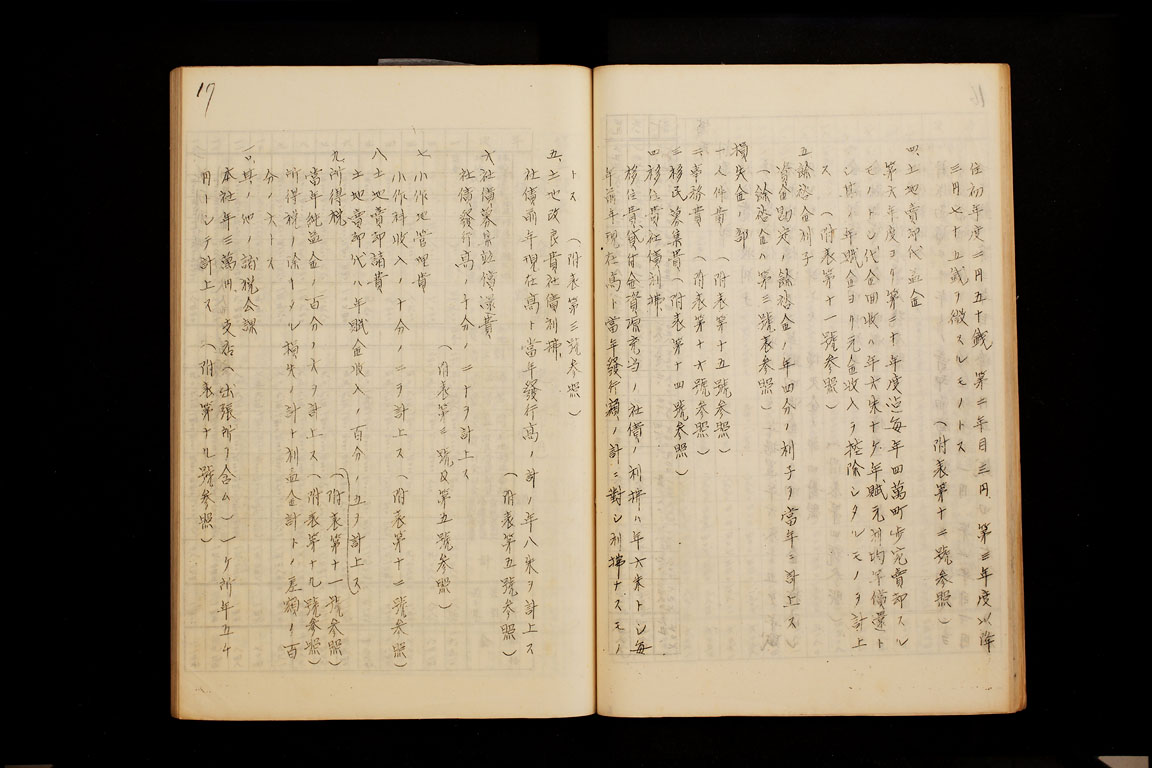 住初年度二月五十錢、第二年目三円、第三年度以降
三円七十五錢ヲ徴スルモノトス
(附表第十二號参照)
四、土地賣却代益金
第六年度ヨリ第三十年度迄毎年四萬町歩宛賣却スル
モノトシ代金回收ハ年六朱十ケ年賦元利均等償還ト
シ其ノ年賦金ヨリ元金收入ヲ控除シタルモノヲ計上
ス (附表第十一號参照)
五、餘裕金利子
資金勘定ノ餘裕金ノ年四分ノ利子ヲ當年ニ計上ス
(餘裕金ハ第三號表参照)
損失金ノ部
一、人件費 (附表第十五號参照)
二、事務費 (附表第十六號参照)
三、移民募集費(附表第十四號参照)
四、移住費社債利拂
移住費貸付金資源充当ノ社債ノ利拂ハ年六朱トシ毎
年前年現在高ト當年發行額ノ計ニ對シ利拂ナスモノ
17
トス (附表第三號参照)
五、土地改良費社債利拂
社債前年現在高ト當年發行高ノ計ノ年八朱ヲ計上ス
(附表第五號参照)
六、社債募集並償還費
社債發行高ノ十分ノ二トヲ計上ス
(附表第三號及第五號参照)
七、小作地管理費
小作料收入ノ十分ノ二ヲ計上ス (附表第十二號参照)
八、土地賣却諸費
土地賣却代ハ年賦金收入ノ百分ノ五ヲ計上ス
(附表第十一號参照)
九、所得税
當年純益金ノ百分ノ六ヲ計上ス(附表第十九號参照)
所得税ノ除キタル損失ノ計ト利益金計トノ差額ノ百
分ノ六トス
一〇、其ノ他ノ諸税公課
本社年三萬円、支店(出張所ヲ含ム)一ケ所年五千
円トシテ計上ス (附表第十九號参照)